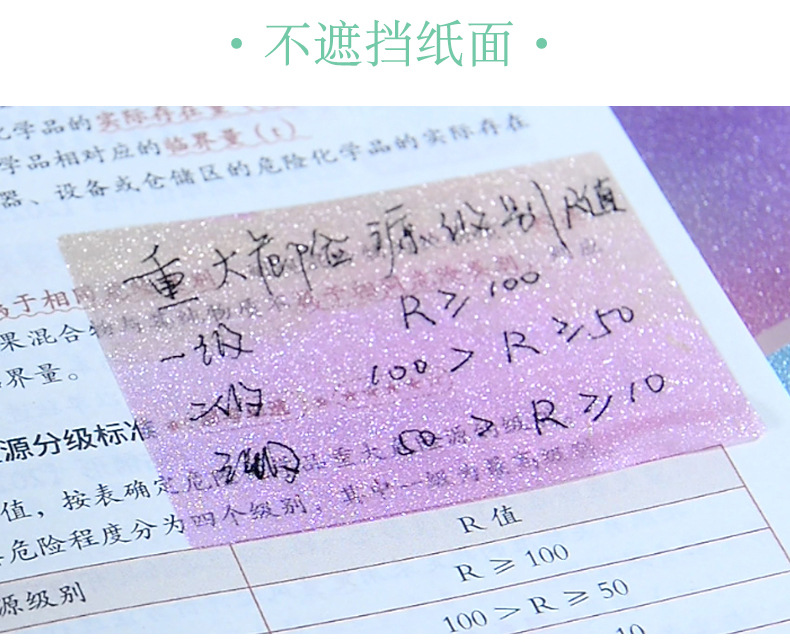 • 不遮挡纸面 •
化学品的实际存在量(
学品相对应的临界量(t)
器、设备或仓储区的危险化学品的实际存在
重大危险源级别 R值
于相同
一级 R≥100
果混合物与
二级 100>R≥50
界量。
三级 50>R≥10
源分级标准
值,按表确定危险 品重大 源的级
危险程度分为四个级别,其中一级为最高级别
R值
源级别 R≥100
100>R≥50
10